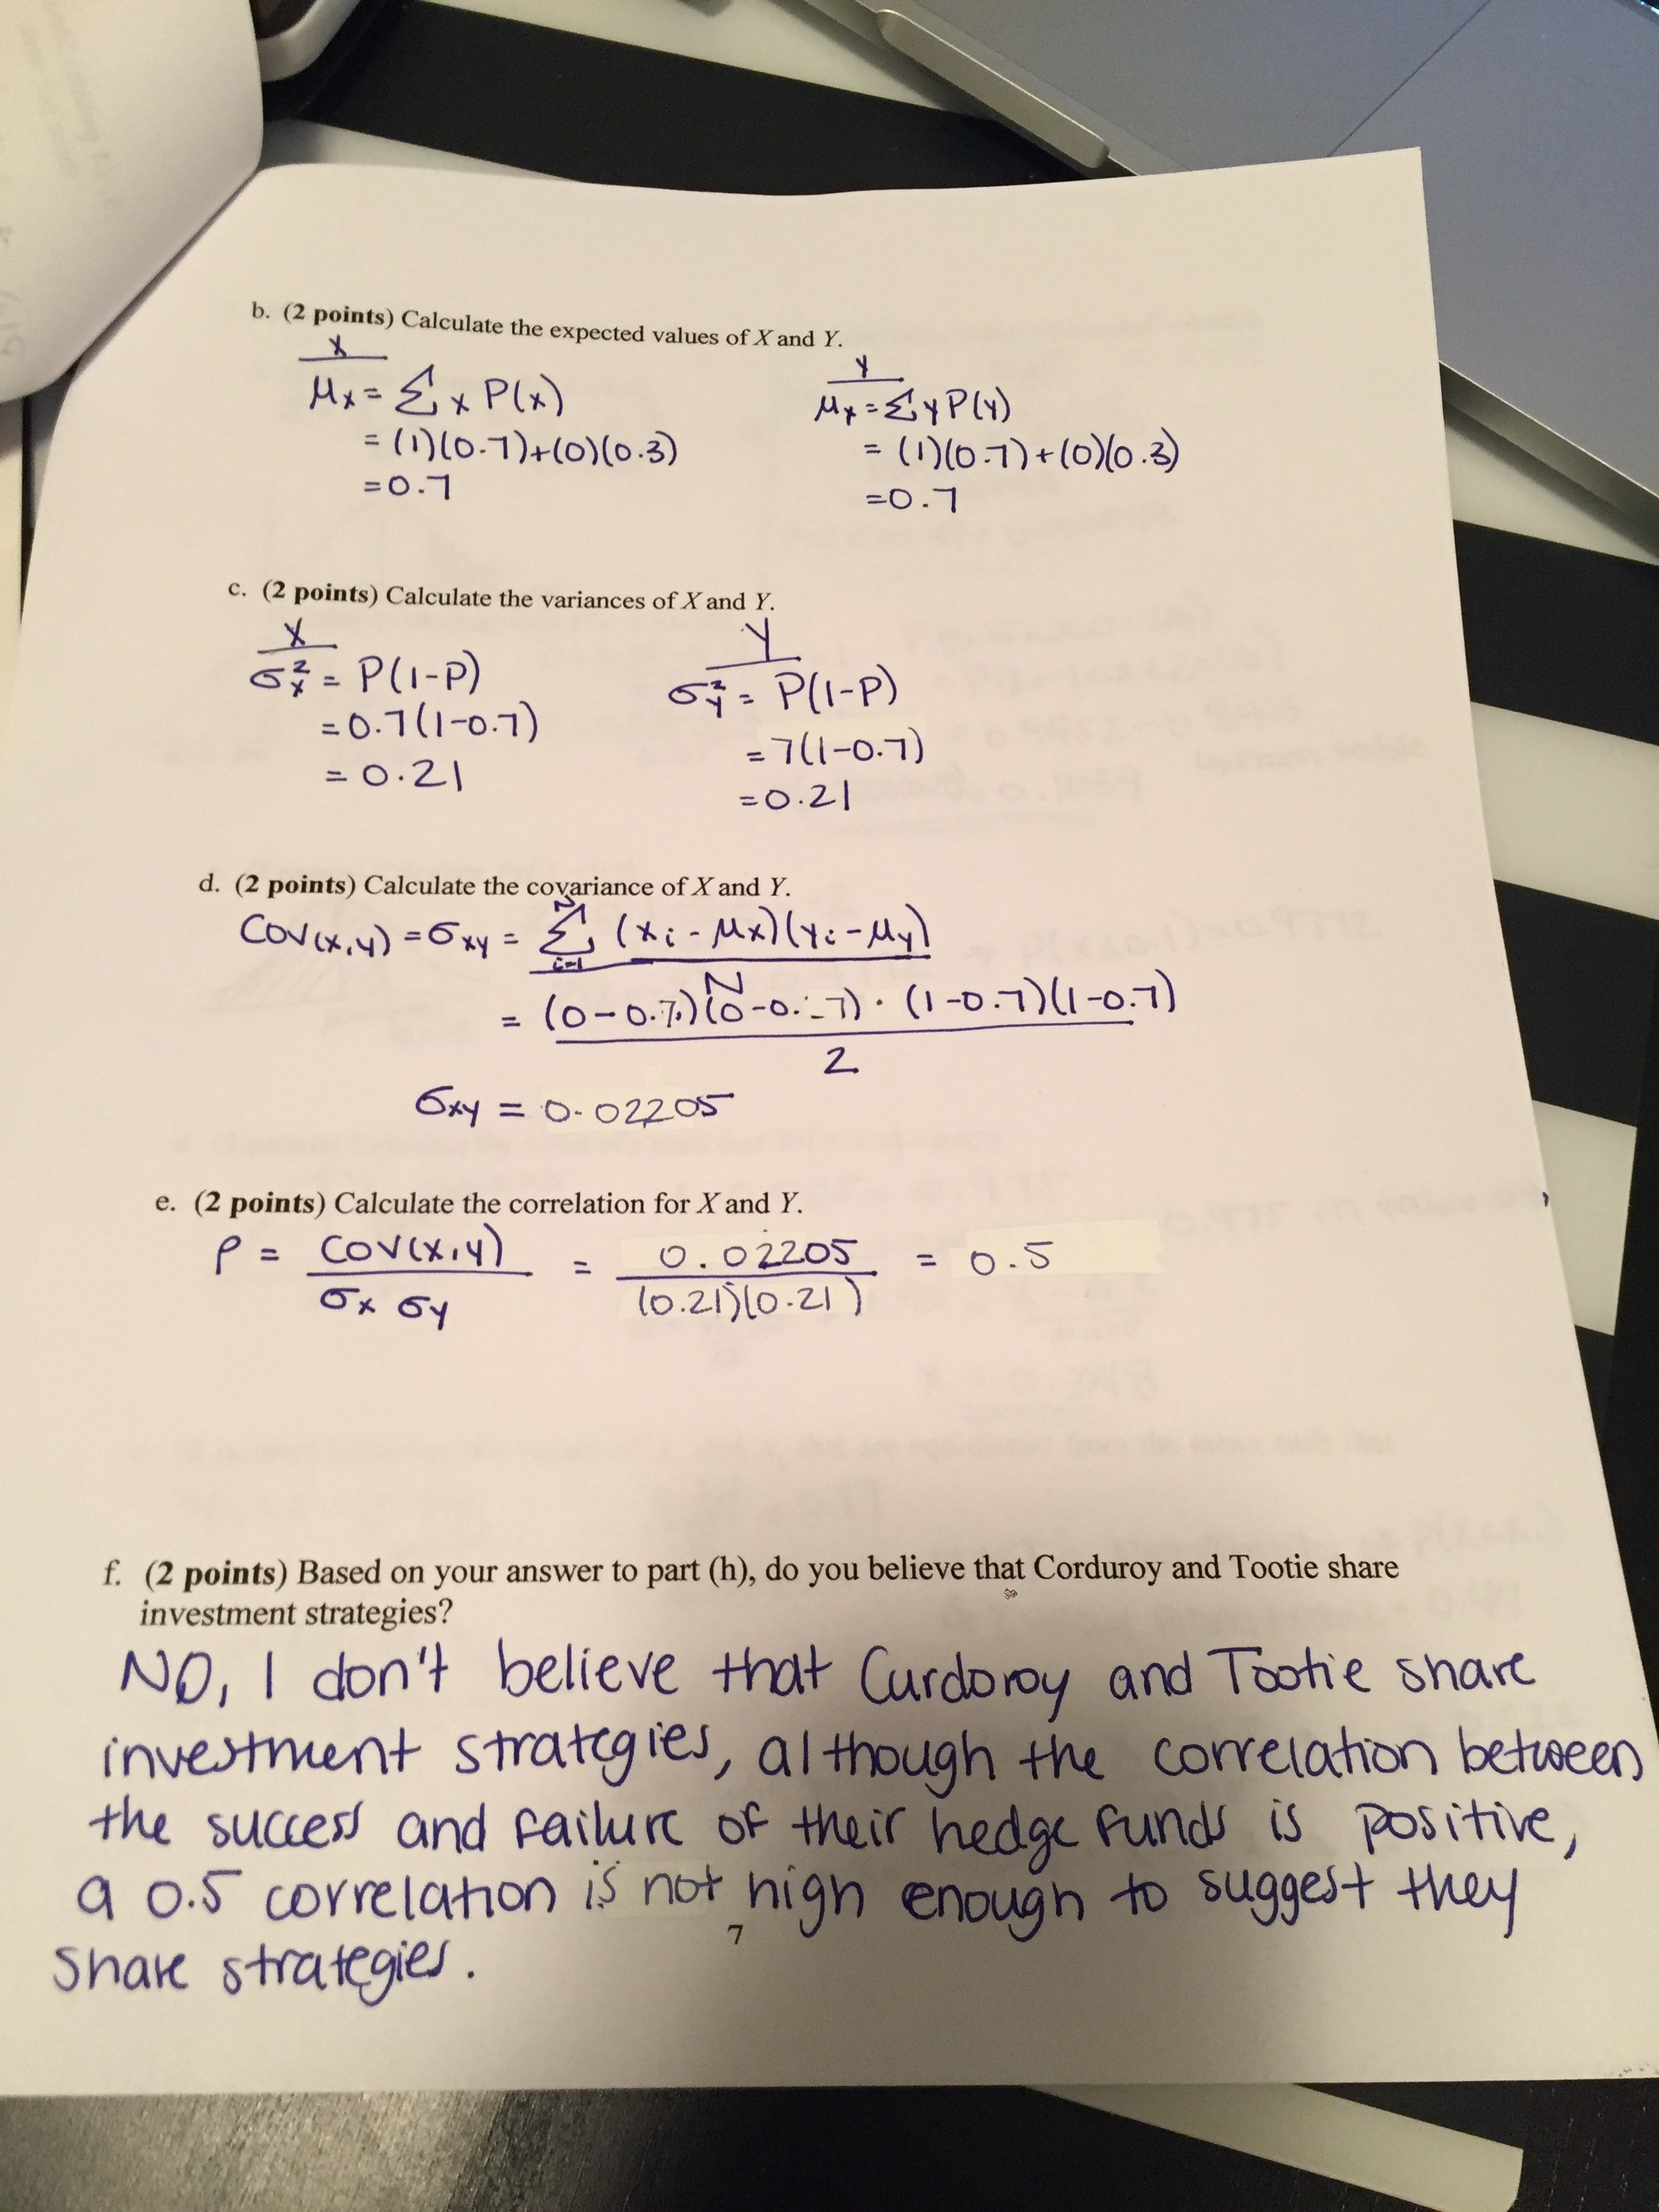 b. (2 points) Calculate the expected values of X and Y.
X Y
μx = Σ x P(x) μy = Σ y P(y)
= (1)(0.7)+(0)(0.3) = (1)(0.7)+(0)(0.3)
=0.7 =0.7
c. (2 points) Calculate the variances of X and Y.
X Y
σ²x = P(1-P) σ²y = P(1-P)
=0.7(1-0.7) =7(1-0.7)
= 0.21 =0.21
d. (2 points) Calculate the covariance of X and Y.
COV(x,y) = σxy = Σ N i=1 (xi - μx)(yi - μy)
N
= (0-0.7)(0-0.7) · (1-0.7)(1-0.7)
2
σxy = 0.02205
e. (2 points) Calculate the correlation for X and Y.
ρ = COV(x,y) = 0.02205 = 0.5
σx σy (0.21)(0.21)
f. (2 points) Based on your answer to part (h), do you believe that Corduroy and Tootie share
investment strategies?
NO, I don't believe that Curdoroy and Tootie share
investment strategies, although the correlation between
the success and failure of their hedge funds is positive,
a 0.5 correlation is not high enough to suggest they
share strategies.
7